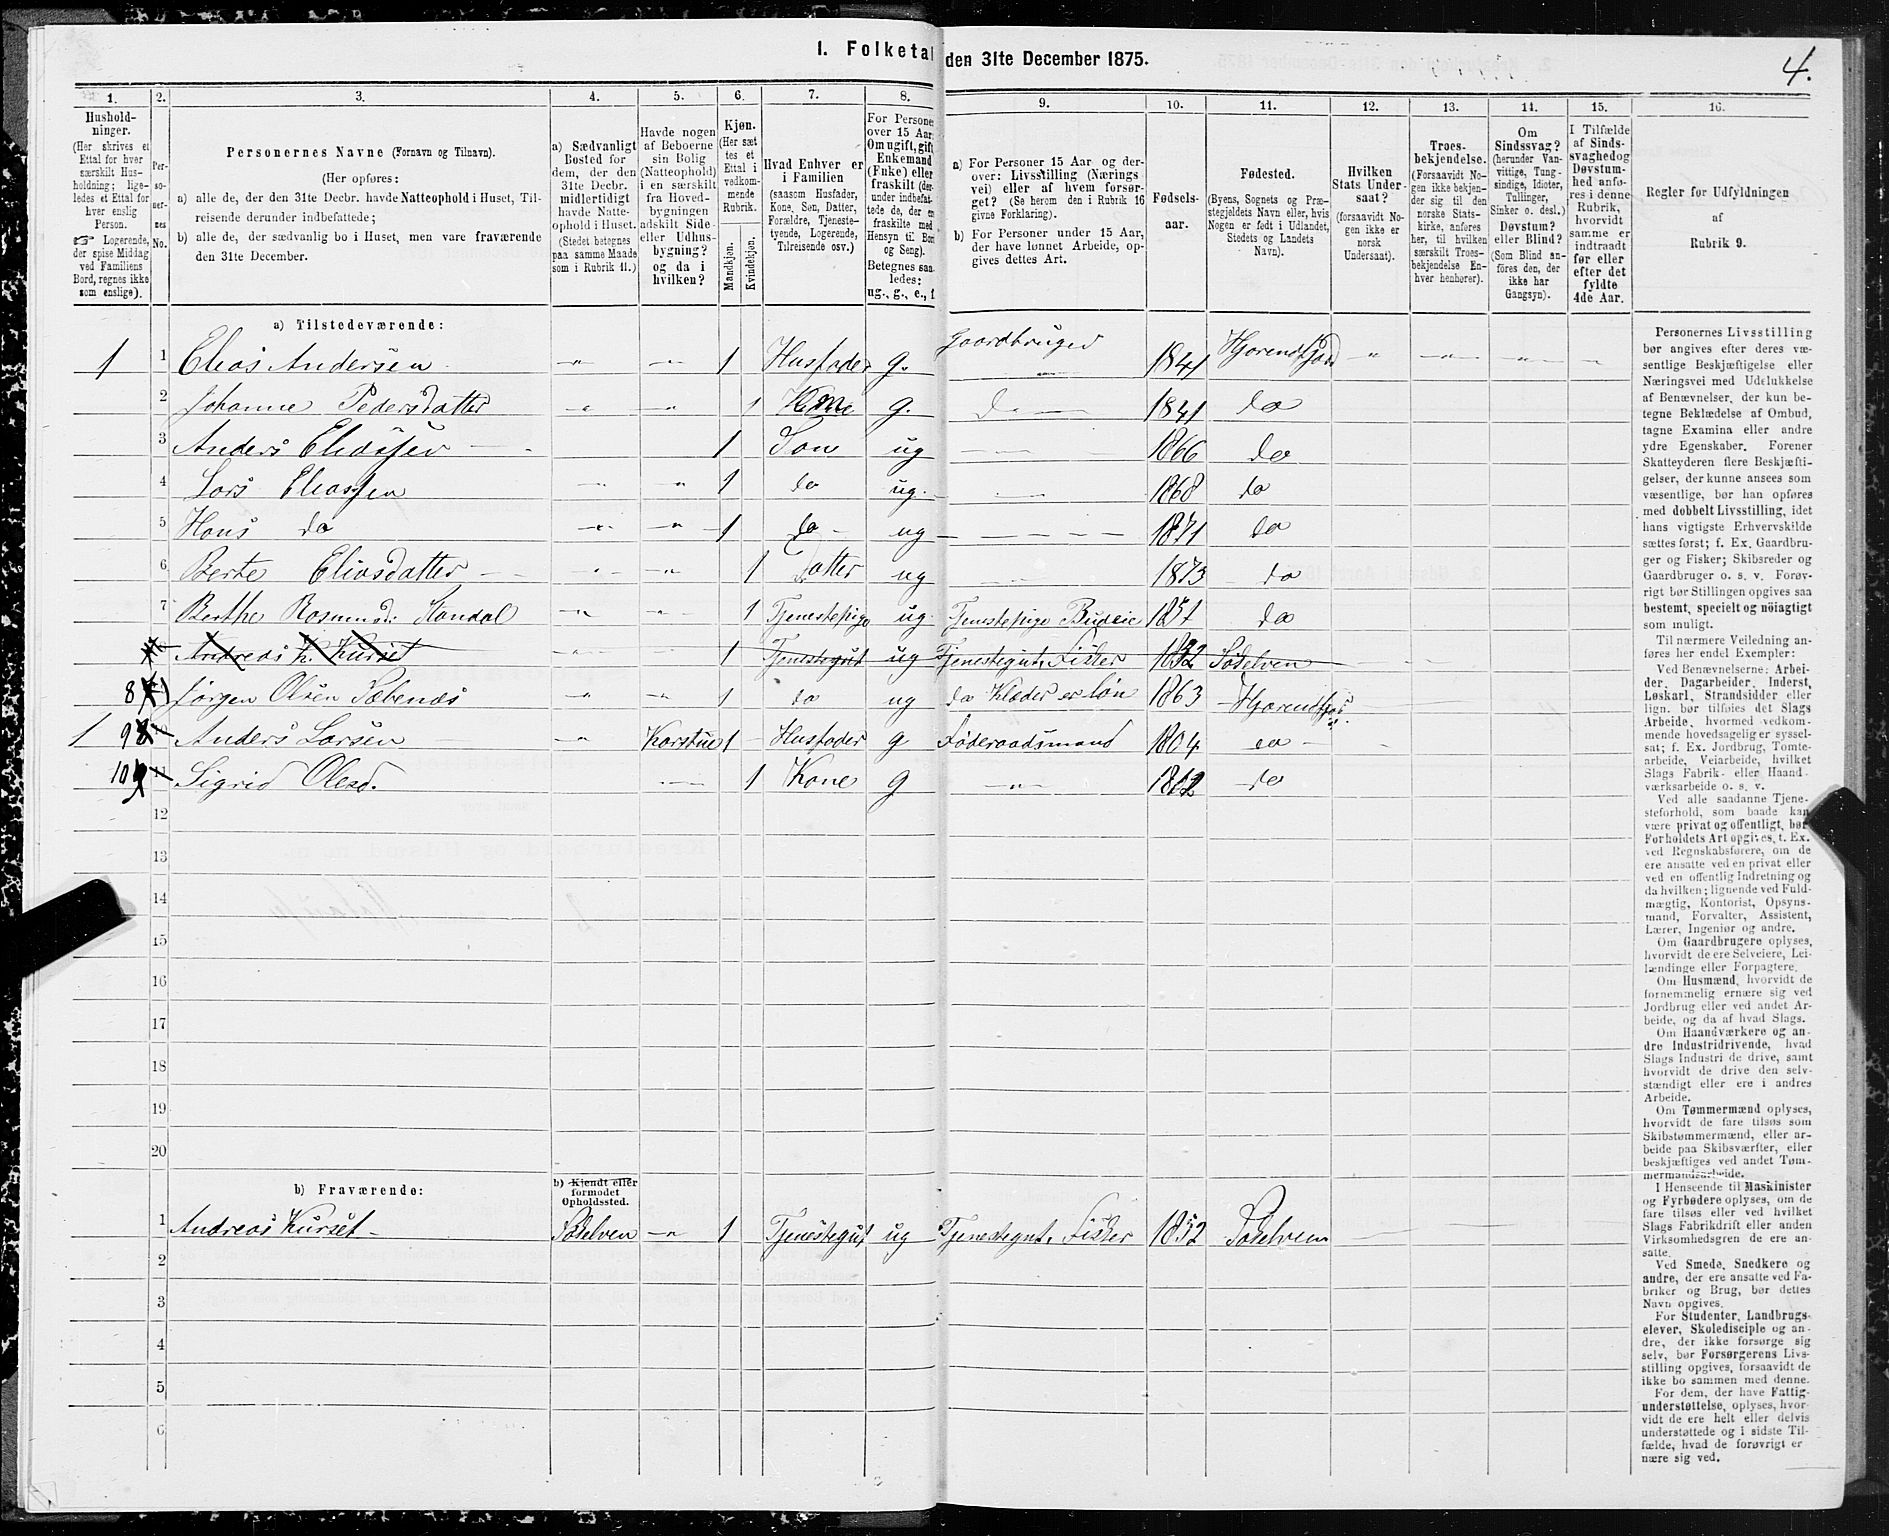 I. Folketal den 31te December 1875.
4.
1. 2. 3. 4. 5. 6. 7. 8. 9. 10. 11. 12. 13. 14. 15. 16.
Husholdninger.
(Her skrives et
Ettal for hver
særskilt Husholdning;
ligeledes et Ettal for
hver enslig
Person.
☞ Logerende,
der spise Middag
ved Familiens
Bord, regnes ikke
som enslige).
Personernes No.
Personernes Navne (Fornavn og Tilnavn).
(Her opføres:
a) alle de, der den 31te Decbr. havde Natteophold i Huset, Tilreisende derunder indbefattede;
b) alle de, der sædvanlig bo i Huset, men vare fraværende
den 31te December.
a) Sædvanligt
Bosted for
dem, der den
31te Decbr.
midlertidigt
havde Natteophold i Huset.
(Stedet betegnes
paa samme Maade
som i Rubrik 11.)
Havde nogen
af Beboerne
sin Bolig
(Natteophold)
i en særskilt
fra Hovedbygningen
adskilt Side-
eller Udhusbygning?
og da i
hvilken?
Kjøn.
(Her sættes et
Ettal i
vedkommende
Rubrik.
Mandkjøn.
Kvindekjøn.
Hvad Enhver er
i Familien
(saasom Husfader,
Kone, Søn, Datter,
Forældre, Tjenestetyende, Logerende,
Tilreisende osv.)
For Personer
over 15 Aar:
Om ugift, gift,
Enkemand
(Enke) eller
fraskilt
Betegnes saaledes:
ug., g., e., f.
a) For Personer 15 Aar og derover: Livsstilling (Næringsvei) eller af hvem forsørget? (Se herom den i Rubrik 16
givne Forklaring).
b) For Personer under 15 Aar,
der have lønnet Arbeide, opgives dettes Art.
Fødselsaar.
Fødested.
(Byens, Sognets og Præstegjeldets Navn eller, hvis
Nogen er født i Udlandet,
Stedets og Landets
Navn).
Hvilken
Stats Undersaat?
(forsaavidt Nogen ikke er
norsk
Undersaat).
Troesbekjendelse.
(Forsaavidt Nogen ikke bekjender sig til den
norske Statskirke, anføres
her, til hvilken
særskilt Troesbekjendelse Enhver henhører).
Om
Sindssvag?
(herunder Vanvittige, Tungsindige, Idioter,
Tullinger,
Sinker o. desl.)
Døvstum?
eller Blind?
(Som Blind anføres den, der
ikke har
Gangsyn).
I Tilfælde
af Sindssvaghed og
Døvstumhed anføres i denne
Rubrik,
hvorvidt
samme er
indtraadt
før eller
efter det
fyldte
4de Aar.
Regler for Udfyldningen
af
Rubrik 9.
a) Tilstedeværende:
1 1 Elias Andersen 1 Husfader g. Gaardbruger 1841 Hjørendfjord
2 Johanne Pedersdatter 1 Kone g. do 1841 do
3 Anders Eliassen 1 Søn ug 1866 do
4 Lars Eliassen 1 do ug. 1868 do
5 Hans do 1 do ug 1871 do
6 Berte Eliasdatter 1 Datter ug 1873 do
7 Berthe Rasmusd: Standal 1 Tjenestepige ug. Tjenestepige Budeie 1851 do
Andreas K. Kurset 1 Tjenestegut ug Tjenestegut, Fisker 1852 Sødelven
8 Jørgen Olsen Sæbenæs 1 do ug do Klæder er løn 1863 Hjørendfjord
1 9 Anders Larsen Karstue 1 Husfader g Føderaadsmand 1804 do
10 Sigrid Olesd. 1 Kone g 1812 do
12
13
14
15
16
17
18
19
20
b) Fraværende:
b) Kjendt eller
formodet
Opholdssted.
1 Andreas Kurset Sødelven 1 Tjenestegut ug Tjenestegut, Fisker 1852 Sødelven
2
3
4
5
6
Personernes Livsstilling
bør angives efter deres væsentlige Beskjæftigelse eller
Næringsvei med Udelukkelse
af Benævnelser, der kun betegne Beklædelse af Ombud,
tagne Examina eller andre
ydre Egenskaber. Forener
Skatteyderen flere Beskjæftigelser, der kunne ansees som
væsentlige, bør han opføres
med dobbelt Livsstilling, idet
hans vigtigste Erhvervskilde
sættes først; f. Ex. Gaardbruger og Fisker; Skibsreder og
Gaardbruger o. s. v. Forøvrigt bør Stillingen opgives saa
bestemt, specielt og nøiagtigt
som muligt.
Til nærmere Veiledning anføres her endel Exempler:
Ved Benævnelserne: Arbeider, Dagarbeider, Inderst,
Løskarl, Strandsidder eller
lign. bør tilføies det Slags
Arbeide, hvormed vedkommende hovedsagelig er sysselsat; f. Ex. Jordbrug, Tomtearbeide, Veiarbeide, hvilket
Slags Fabrik- eller Haandværksarbeide o. s. v.
Ved alle saadanne Tjenesteforhold, som baade kan
være privat og offentligt, bør
Forholdets Art opgives, t. Ex.
ved Regnskabsførere, om de
ere ansatte ved en privat eller
ved en offentlig Indretning og
da hvilken; lignende ved Fuldmægtig, Kontorist, Opsynsmand, Forvalter, Assistent,
Lærer, Ingeniør og andre.
Om Gaardbrugere oplyses,
hvorvidt de ere Selveiere, Leilændinge eller Forpagtere.
Om Husmænd, hvorvidt de
fornemmelig ernære sig ved
Jordbrug eller ved andet Arbeide, og da af hvad Slags.
Om Haandværkere og andre Industridrivende, hvad
Slags Industri de drive, samt
hvorvidt de drive den selvstændigt eller ere i andres
Arbeide.
Om Tømmermænd oplyses,
hvorvidt de fare tilsøs som
Skibstømmermænd, eller arbeide paa Skibsværfter, eller
beskjæftiges ved andet Tømmermandsarbeide.
I Henseende til Maskinister
og Fyrbødere oplyses, om de
fare tilsøs eller ved hvilket
Slags Fabrikdrift eller anden
Virksomhedsgren de ere ansatte.
Ved Smede, Snedkere og
andre, der ere ansatte ved Fabriker og Brug, bør dettes
Navn opgives.
For Studenter, Landbrugselever, Skoledisciple og andre, der ikke forsørge sig
selv, bør Forsørgerens Livsstilling opgives, forsaavidt de
ikke bo sammen med denne.
For dem, der have Fattigunderstøttelse, oplyses, hvorvidt de ere helt eller delvis
understøttede og i sidste Tilfælde, hvad de forøvrigt er
nære sig ved.